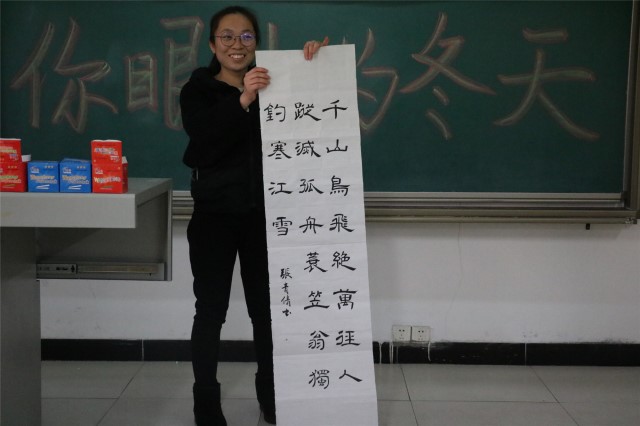 你眼 的冬天
千山鳥飛絕萬徑人
蹤滅孤舟蓑笠翁獨
釣寒江雪